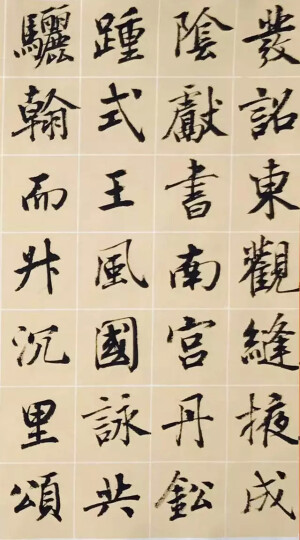 發詔東觀縫掖成
陰獻書南宮丹鈆
踵武王風國詠共
驪翰而升沉里頌